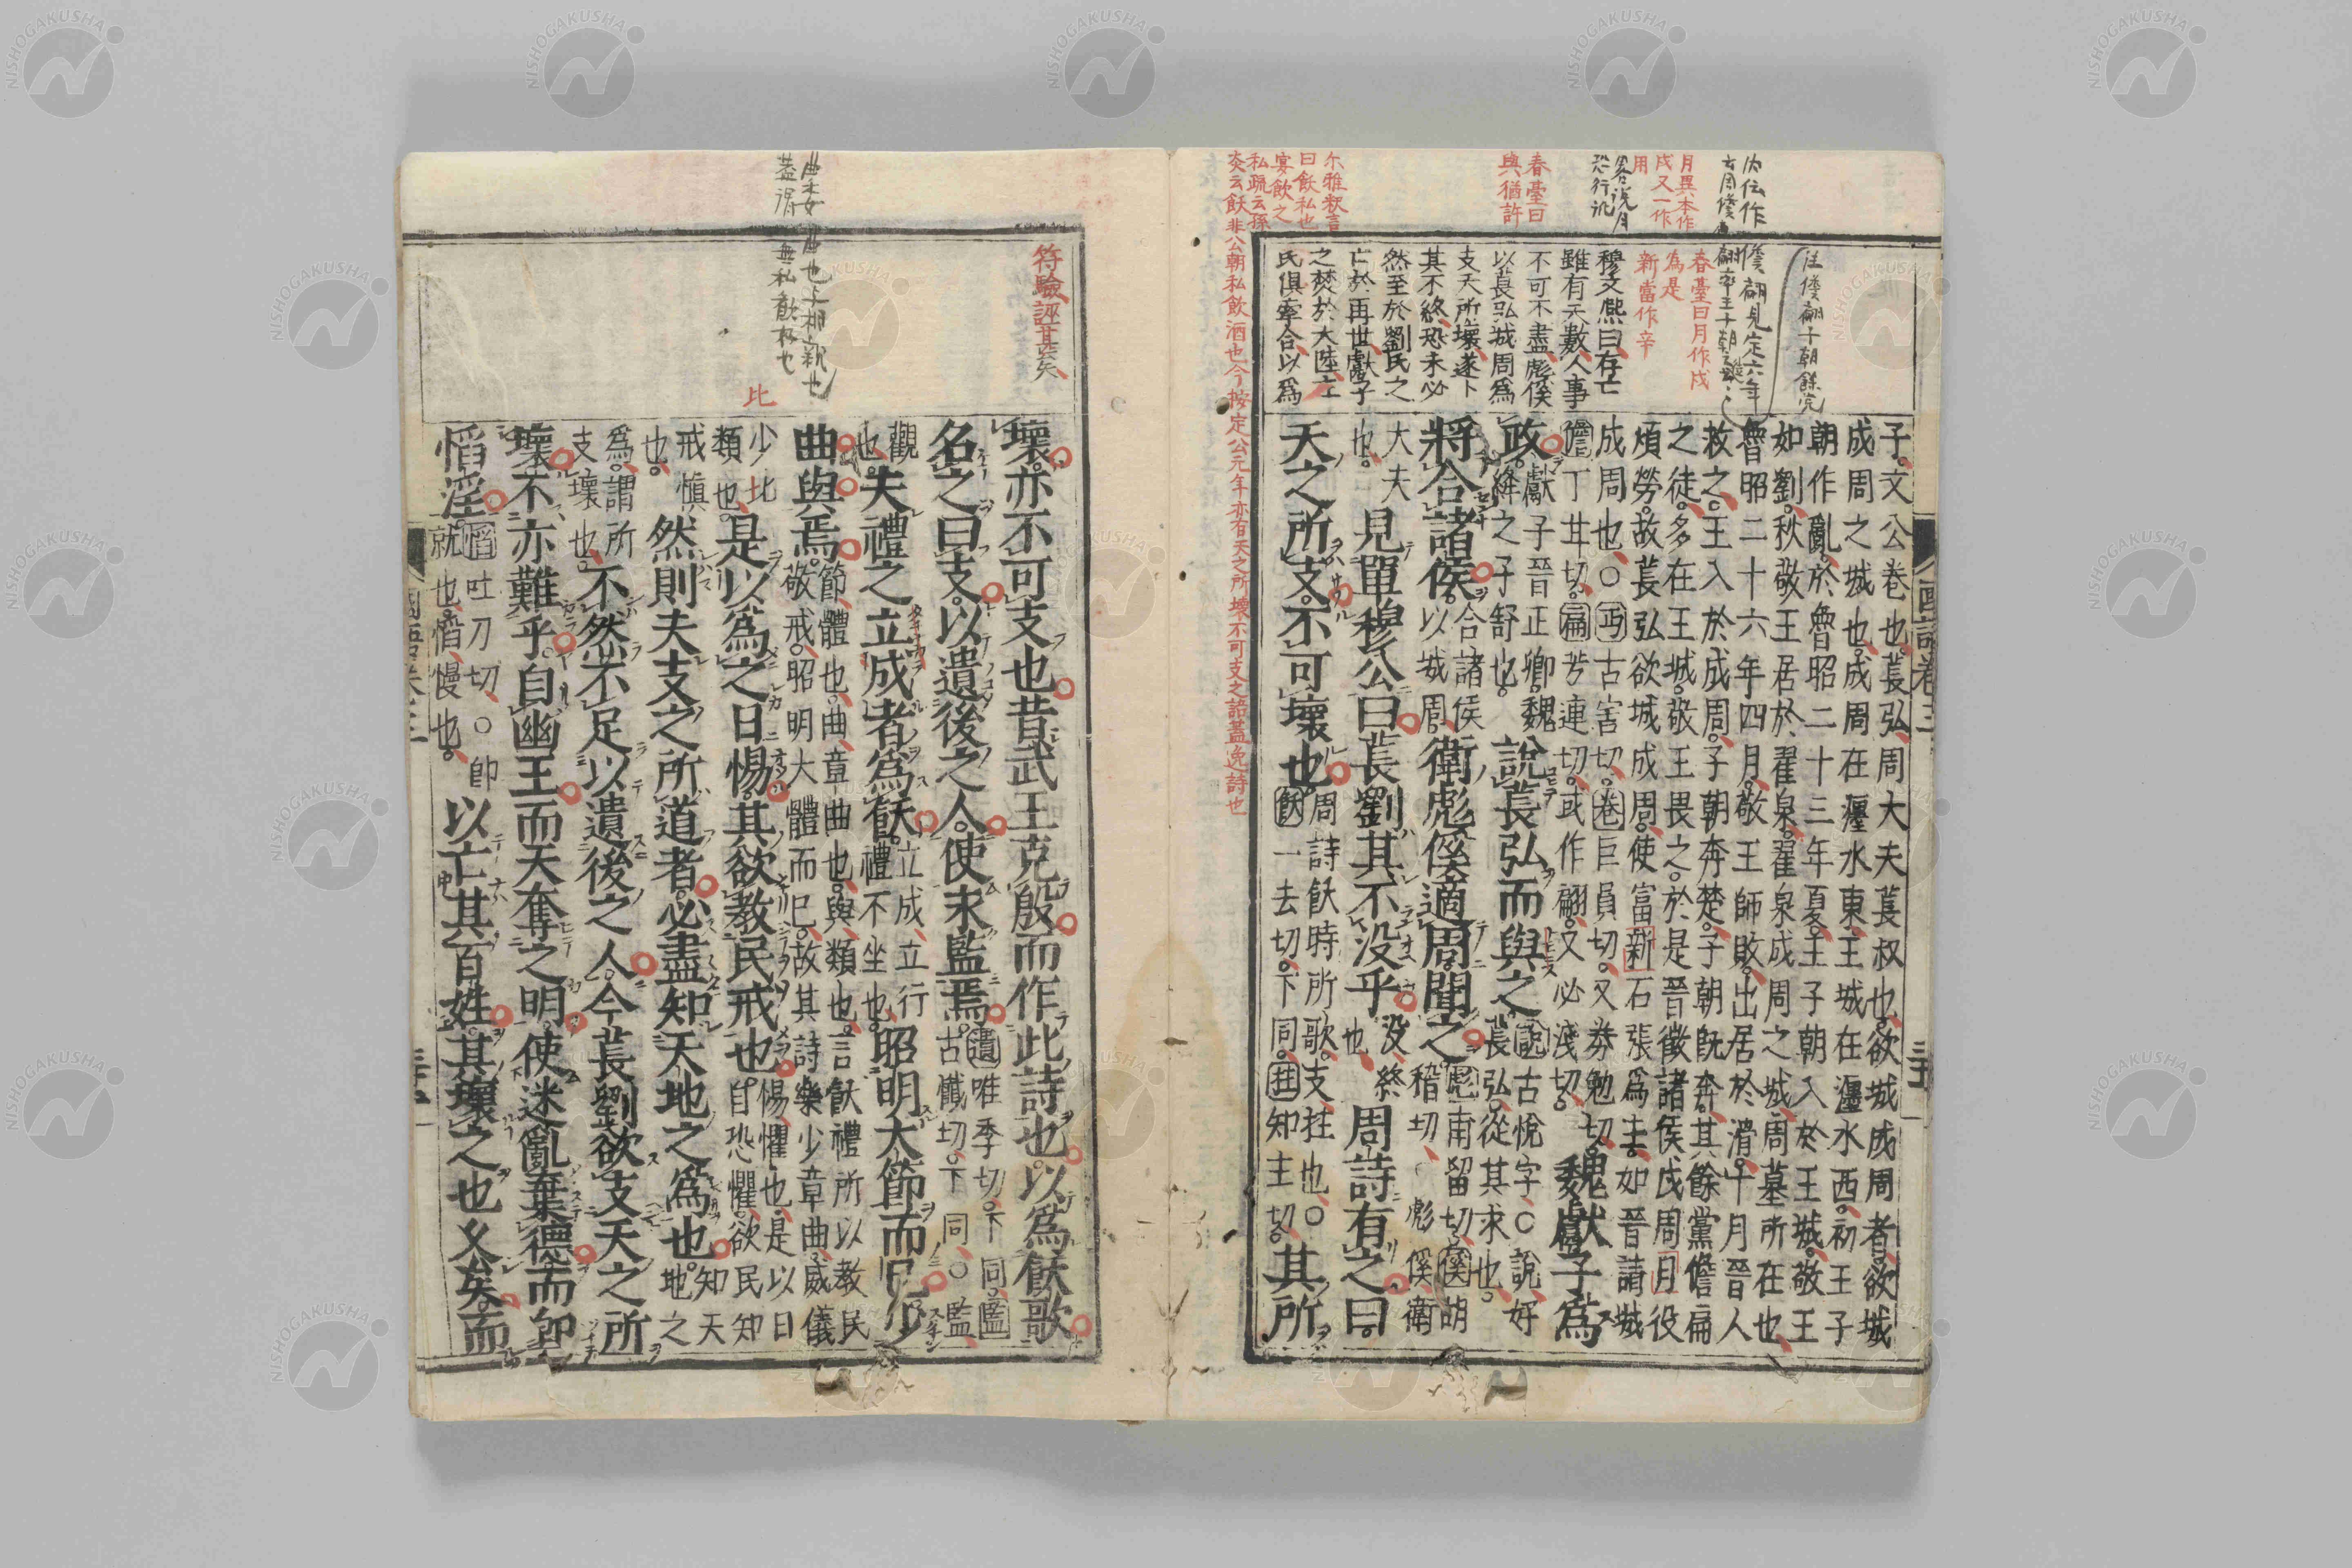 子。文公卷也。萇弘、周大夫萇叔也。欲城成周者、欲城
成周之城也。成周在瀍水東、王城在瀍水西。初王子
朝作亂。於魯昭二十三年夏、王子朝入於王城。敬王
如劉。秋、敬王居於翟泉。翟泉成周之城、周墓所在也、
魯昭二十六年四月、敬王師敗。出居於滑。十月晉人
救之。王入於成周。子朝奔楚。子朝旣奔、其餘黨儋扁
之徒、多在王城。敬王畏之。於是晉徵諸侯戍周月役
煩勞。故萇弘欲城成周。使富新石張爲主。如晉請城
成周也。○丐古害切。卷巨員切。又劵勉切。魏獻子爲
儋丁甘切。扁芳連切。或作翩。又必淺切。
政。獻子晉正卿。魏
絳之子舒也。
說萇弘而與之
說古悅字、○說、好
萇弘。從其求也。
將合諸侯。
合諸侯
以城周。
衛彪傒適周。聞之。
彪甫留切、傒胡
稽切、彪傒衛
大夫
也。
見單穆公曰。萇劉其不没乎。
没、終
也、
周詩有之曰。
天之所支。不可壞也。
周詩飫時所歌。支拄也、○
飫一去切。下同。拄知主切。
其所
穆文熙曰存亡
雖有天數人事
不可不盡、彪傒
以萇弘城周爲
支天所壞、遂卜
其不終、恐未必
然至於劉氏之
亡於再世、獻子
之焚於大陸、二
民俱牽合、以爲
春臺曰月作戍
爲是
新當作辛
月異本作
戍又一作
用
春臺曰
與猶許
尔雅釈言
曰飫私也
宴飲之
私疏云孫
炎云飫非公朝私飲酒也今按定公元年亦有天之所壞不可支之語蓋逸詩也
國語卷三
符驗誣甚矣、
比
壞。亦不可支也。昔武王克殷。而作此詩也。以爲飫歌。
名之曰支。以遺後之人。使永監焉。
遺唯季切。下同。監
古懺切。下同、○監、
觀
也。
夫禮之立成者爲飫。
立成、立行
禮不坐也。
昭明大節而已。少
曲與焉。
節、體也。曲、章曲也。與、類也。言飫禮所以教民
敬戒。昭明大體而已。故其詩樂少章曲。威儀
少比
類也。
是以爲之日惕。其欲教民戒也。
惕、懼也。是以日
自恐懼。欲民知
戒愼
也。
然則夫支之所道者。必盡知天地之爲也。
知天
地之
爲。謂所
支壞也。
不然。不足以遺後之人。今萇劉欲支天之所
壞。不亦難乎。自幽王而天奪之明。使迷亂棄德。而卽
慆淫。
慆吐刀切。○卽
就也。慆、慢也。
以亡其百姓。其壞之也久矣。而